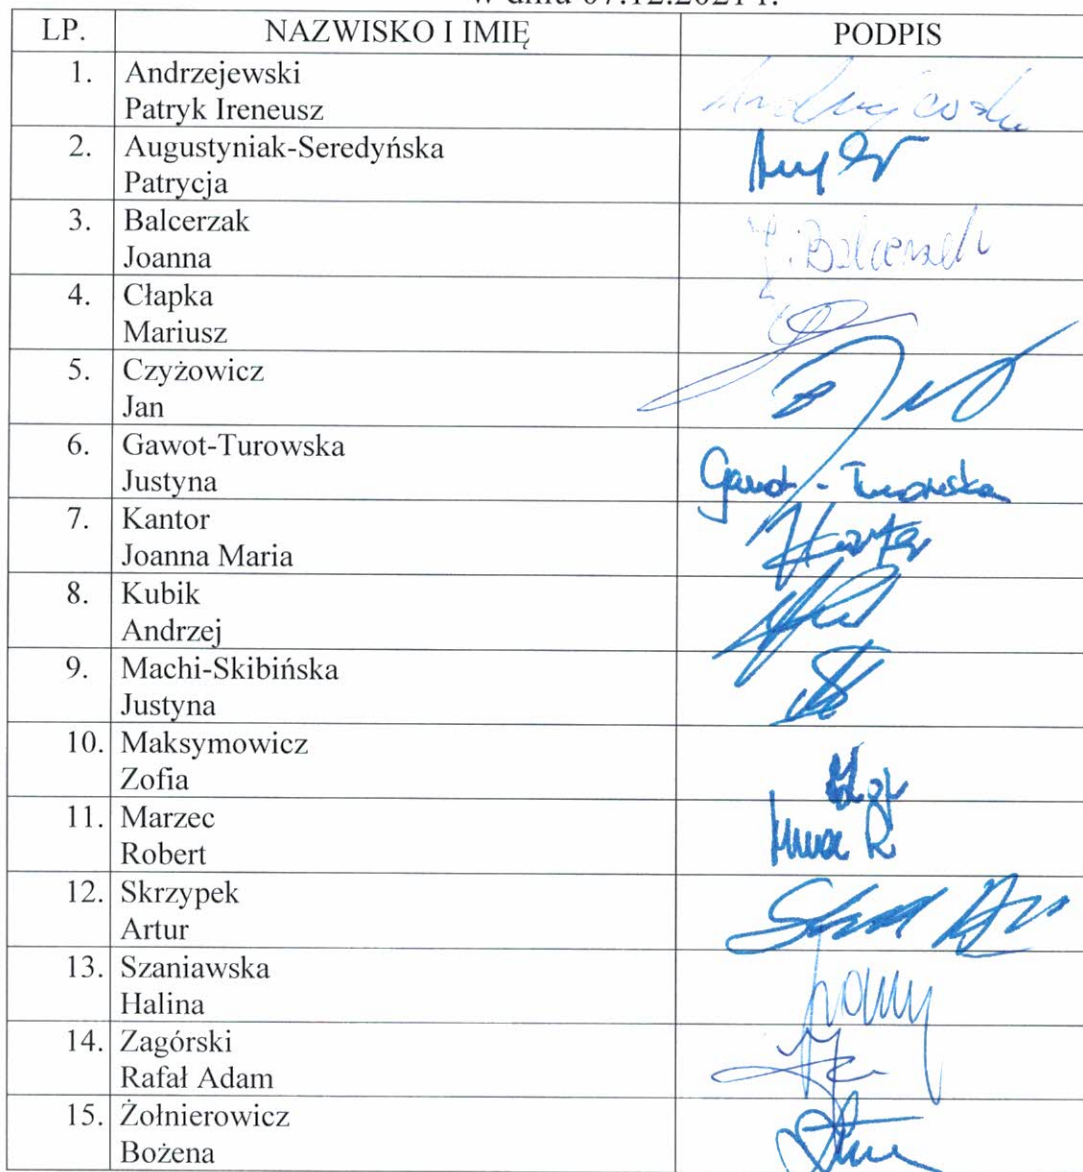 w dniu 07.12.2021 r.
LP. NAZWISKO I IMIĘ PODPIS
1. Andrzejewski
Patryk Ireneusz
2. Augustyniak-Seredyńska
Patrycja
3. Balcerzak
Joanna
J. Balcerzak
4. Cłapka
Mariusz
5. Czyżowicz
Jan
6. Gawot-Turowska
Justyna
Gawot-Turowska
7. Kantor
Joanna Maria
8. Kubik
Andrzej
9. Machi-Skibińska
Justyna
10. Maksymowicz
Zofia
11. Marzec
Robert
12. Skrzypek
Artur
13. Szaniawska
Halina
14. Zagórski
Rafał Adam
15. Żołnierowicz
Bożena